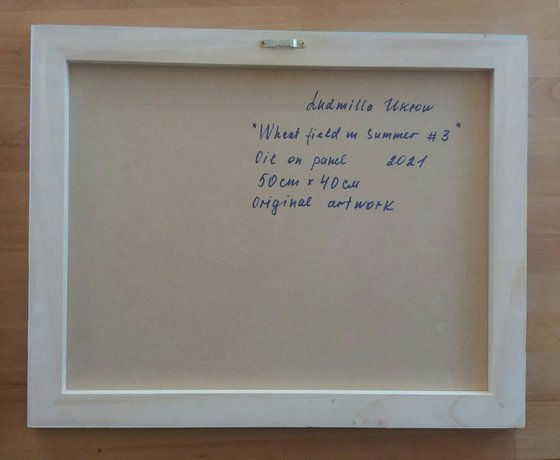 Ludmilla Ukrow
"Wheat field in Summer #3"
Oil on panel 2021
50cm x 40cм
Original artwork